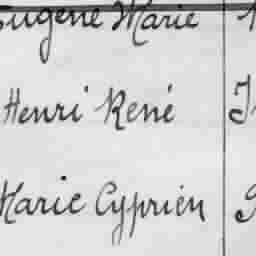 Eugene Marie
Henri René
Marie Cyprien